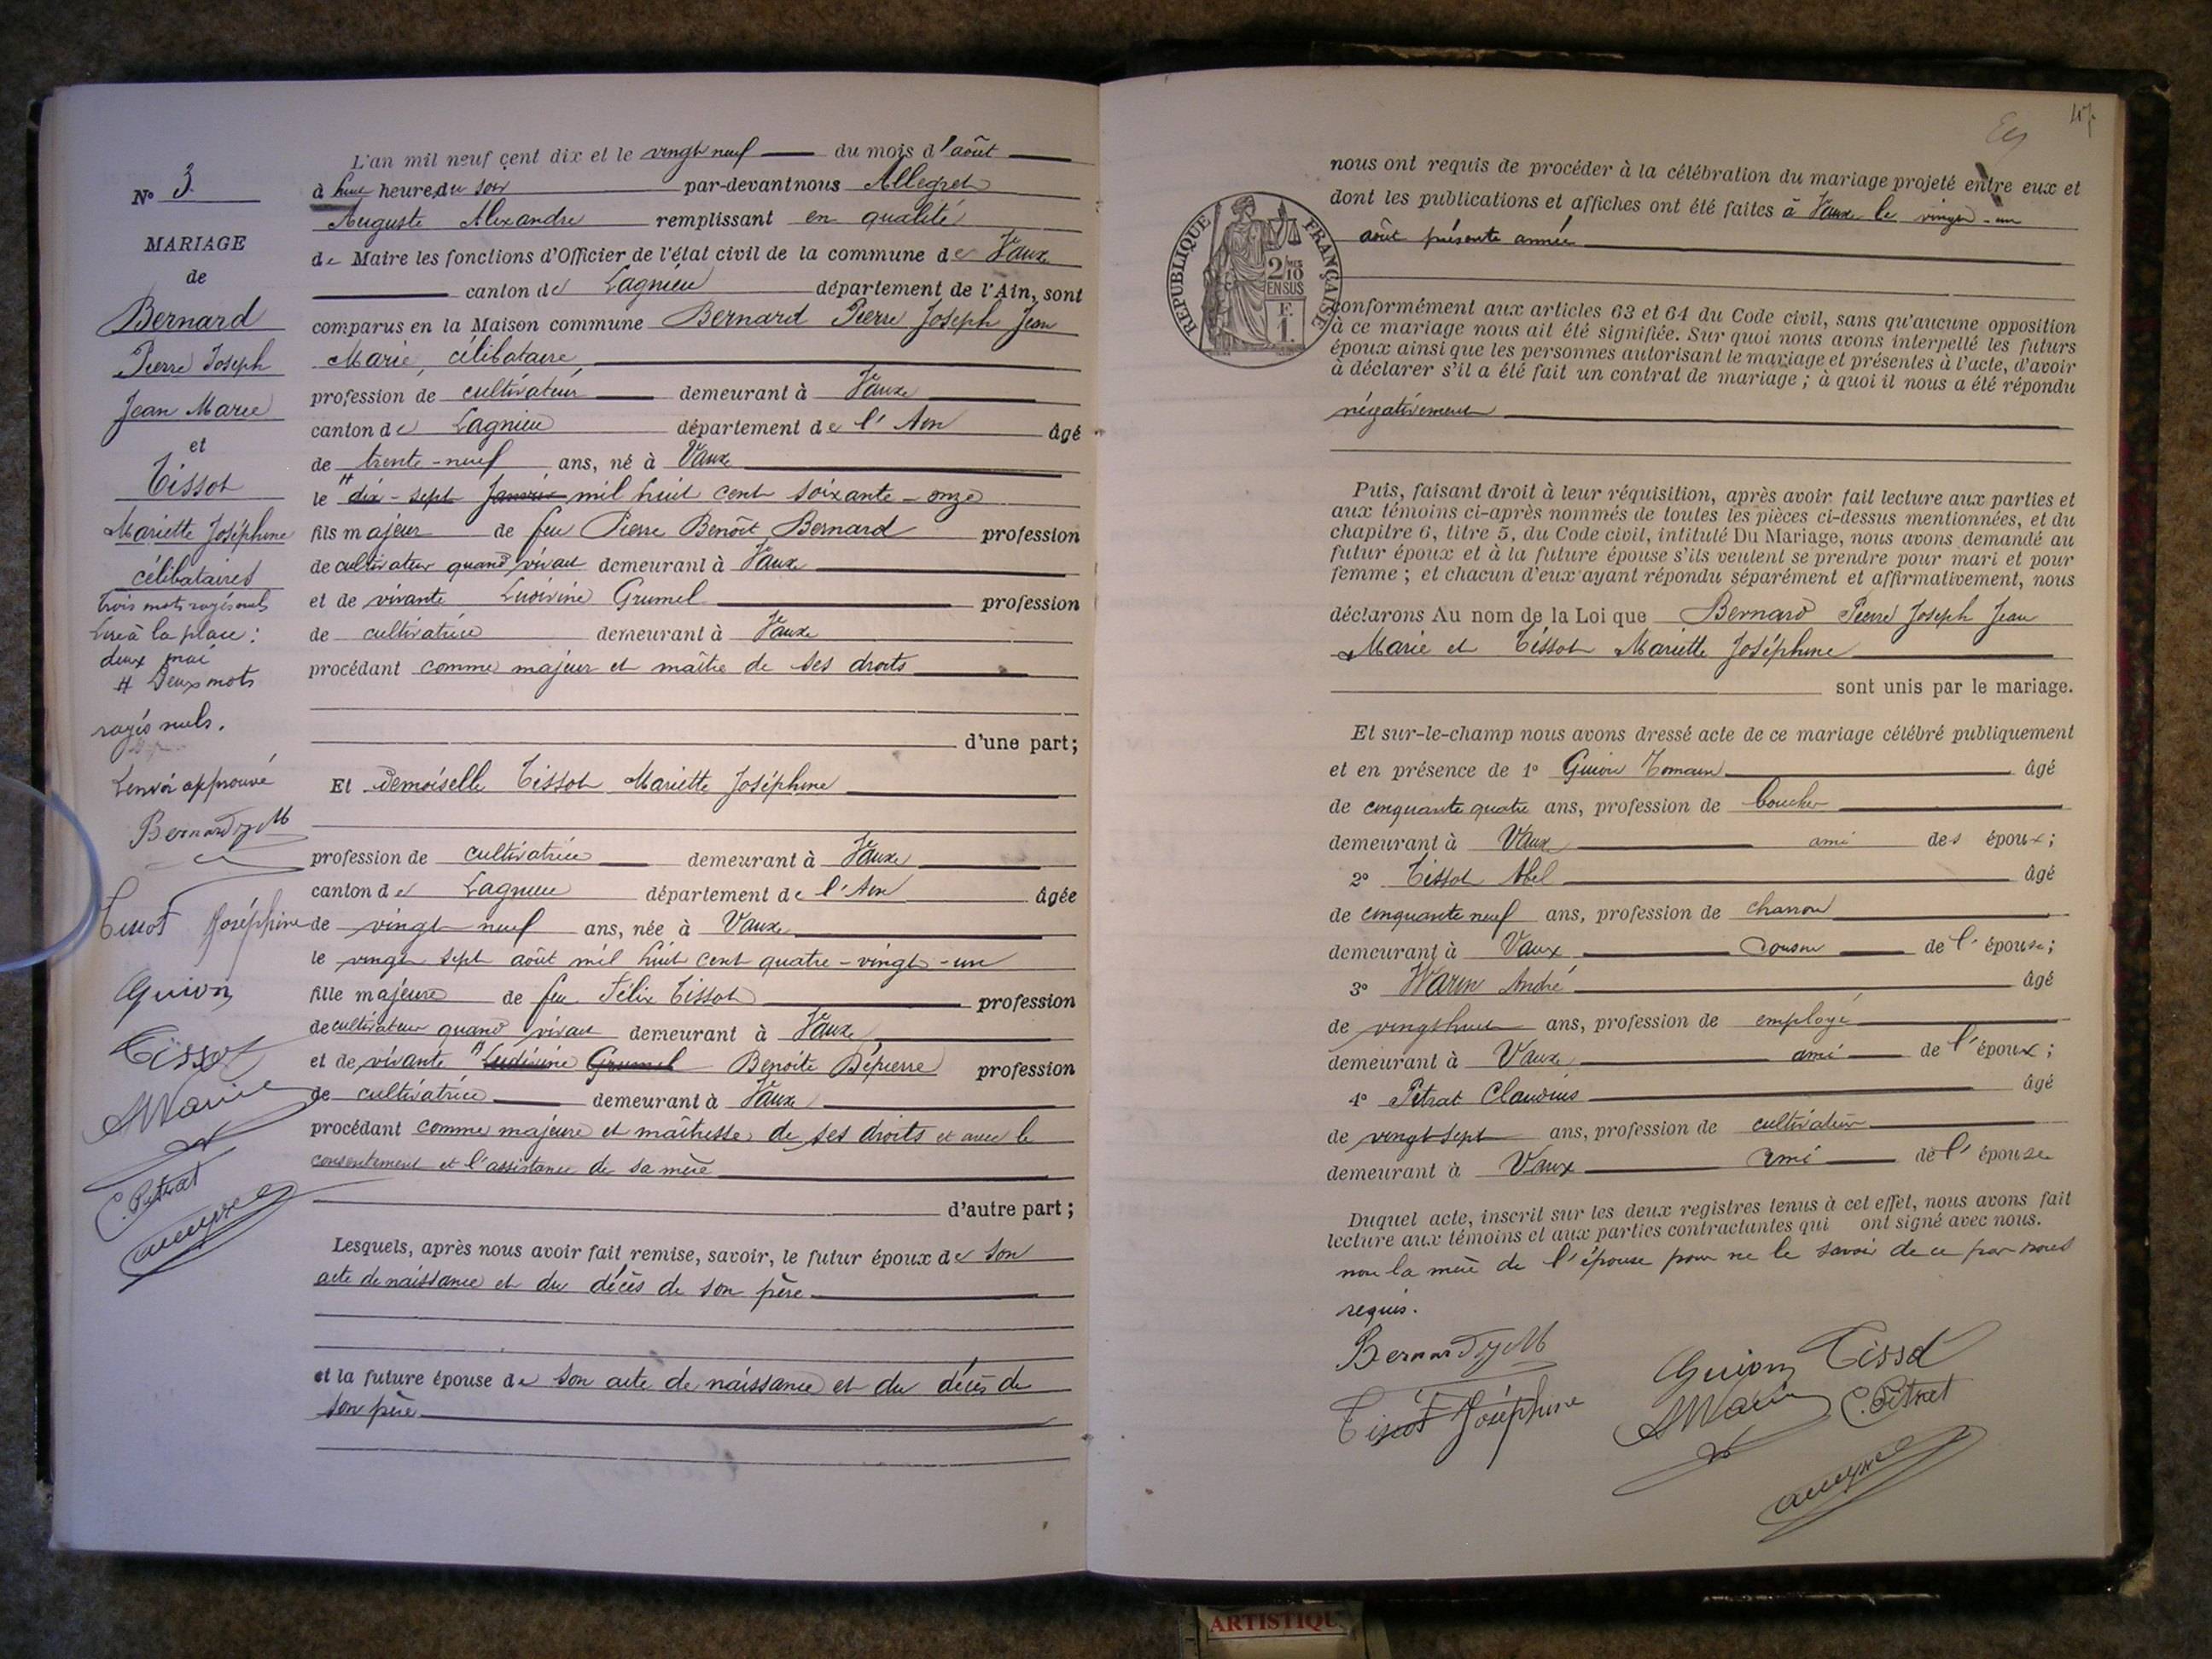 L'an mil neuf cent dix et le vingt neuf du mois d'août
à huit heures du soir par-devant nous Allegret
Auguste Alexandre remplissant en qualité
de Maire les fonctions d'Officier de l'état civil de la commune de Vaux
canton de Lagnieu département de l'Ain, sont
comparus en la Maison commune Bernard Pierre Joseph Jean
Marie, célibataire
profession de cultivateur demeurant à Vaux
canton de Lagnieu département de l'Ain âgé
de trente-neuf ans, né à Vaux
le # dix-sept Janvier mil huit cent soixante-onze
fils majeur de feu Pierre Benoît Bernard profession
de cultivateur quand vivait demeurant à Vaux
et de vivante Ludivine Grumel profession
de cultivatrice demeurant à Vaux
procédant comme majeur et maître de ses droits
d'une part;
Et Demoiselle Tissot Mariette Joséphine
profession de cultivatrice demeurant à Vaux
canton de Lagnieu département de l'Ain âgée
de vingt neuf ans, née à Vaux
le vingt sept août mil huit cent quatre-vingt-un
fille majeure de feu Félix Tissot profession
de cultivateur quand vivait demeurant à Vaux
et de vivante # Ludivine Grumel Benoite Dépierre profession
de cultivatrice demeurant à Vaux
procédant comme majeure et maîtresse de ses droits et avec le
consentement et l'assistance de sa mère
d'autre part;
Lesquels, après nous avoir fait remise, savoir, le futur époux de son
acte de naissance et du décès de son père
et la future épouse de son acte de naissance et du décès de
son père
No 3.
MARIAGE
de
Bernard
Pierre Joseph
Jean Marie
et
Tissot
Mariette Joséphine
célibataires
trois mots rayés nuls
Lire à la place:
deux mai
# Deux mots
rayés nuls.
Renvoi approuvé
Bernard
Tissot Joséphine
Guion
Tissot
AWarin
C. Pitrat
47
nous ont requis de procéder à la célébration du mariage projeté entre eux et
dont les publications et affiches ont été faites à Vaux le vingt-un
août présente année
RÉPUBLIQUE FRANÇAISE
2/10
EN SUS
F.
1.
conformément aux articles 63 et 64 du Code civil, sans qu'aucune opposition
à ce mariage nous ait été signifiée. Sur quoi nous avons interpellé les futurs
époux ainsi que les personnes autorisant le mariage et présentes à l'acte, d'avoir
à déclarer s'il a été fait un contrat de mariage; à quoi il nous a été répondu
négativement
Puis, faisant droit à leur réquisition, après avoir fait lecture aux parties et
aux témoins ci-après nommés de toutes les pièces ci-dessus mentionnées, et du
chapitre 6, titre 5, du Code civil, intitulé Du Mariage, nous avons demandé au
futur époux et à la future épouse s'ils veulent se prendre pour mari et pour
femme; et chacun d'eux ayant répondu séparément et affirmativement, nous
déclarons Au nom de la Loi que Bernard Pierre Joseph Jean
Marie et Tissot Mariette Joséphine
sont unis par le mariage.
Et sur-le-champ nous avons dressé acte de ce mariage célébré publiquement
et en présence de 1° Guion Romain âgé
de cinquante quatre ans, profession de boucher
demeurant à Vaux ami des époux;
2° Tissot Abel âgé
de cinquante neuf ans, profession de charron
demeurant à Vaux cousin de l'épouse;
3° Warin André âgé
de vingt huit ans, profession de employé
demeurant à Vaux ami de l'époux;
4° Pitrat Claudius âgé
de vingt sept ans, profession de cultivateur
demeurant à Vaux ami de l'épouse
Duquel acte, inscrit sur les deux registres tenus à cet effet, nous avons fait
lecture aux témoins et aux parties contractantes qui ont signé avec nous.
non la mère de l'épouse pour ne le savoir de ce par nous
requis.
Bernard
Guion Tissot
Tissot Joséphine
AWarin C. Pitrat
ARTISTIQU